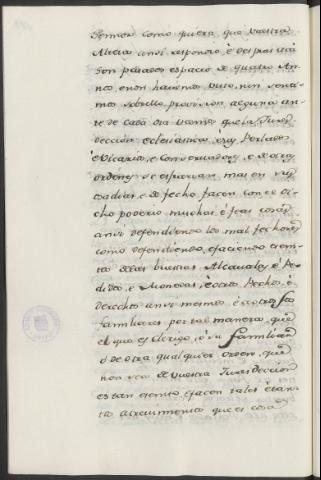 Sennor como quiera que vuestra
Alteza ansi respondió, é despues acá
son pasados espacio de quatro An-
nos, enon havemos visto, nin senti-
mos sobrello provision alguna an-
te de cada dia veemos que la Juris-
deccion eclesiastica, é sus Perlados
é Vicarios, e Conservadores, e de otras
ordenes se esfuerzan mas en sus
osadias, e de fecho facen con el di-
cho poderio muchas é feas cosas
ansi defendiendo los mal fechores
como defendiendo, e faciendo esem-
tos de las vuestras Alcavalas é Pe-
didos, é Monedas, é otros Pechos, é
derechos ansi mesmos é a otros sus
familiares por tal manera, que
el que es clerigo, ó su familiar
ó de otra qualquier orden, que
non sea de vuestra Jurisdeccion
es tan esento, é facen tales é tan-
to atrevimiento que es cosa